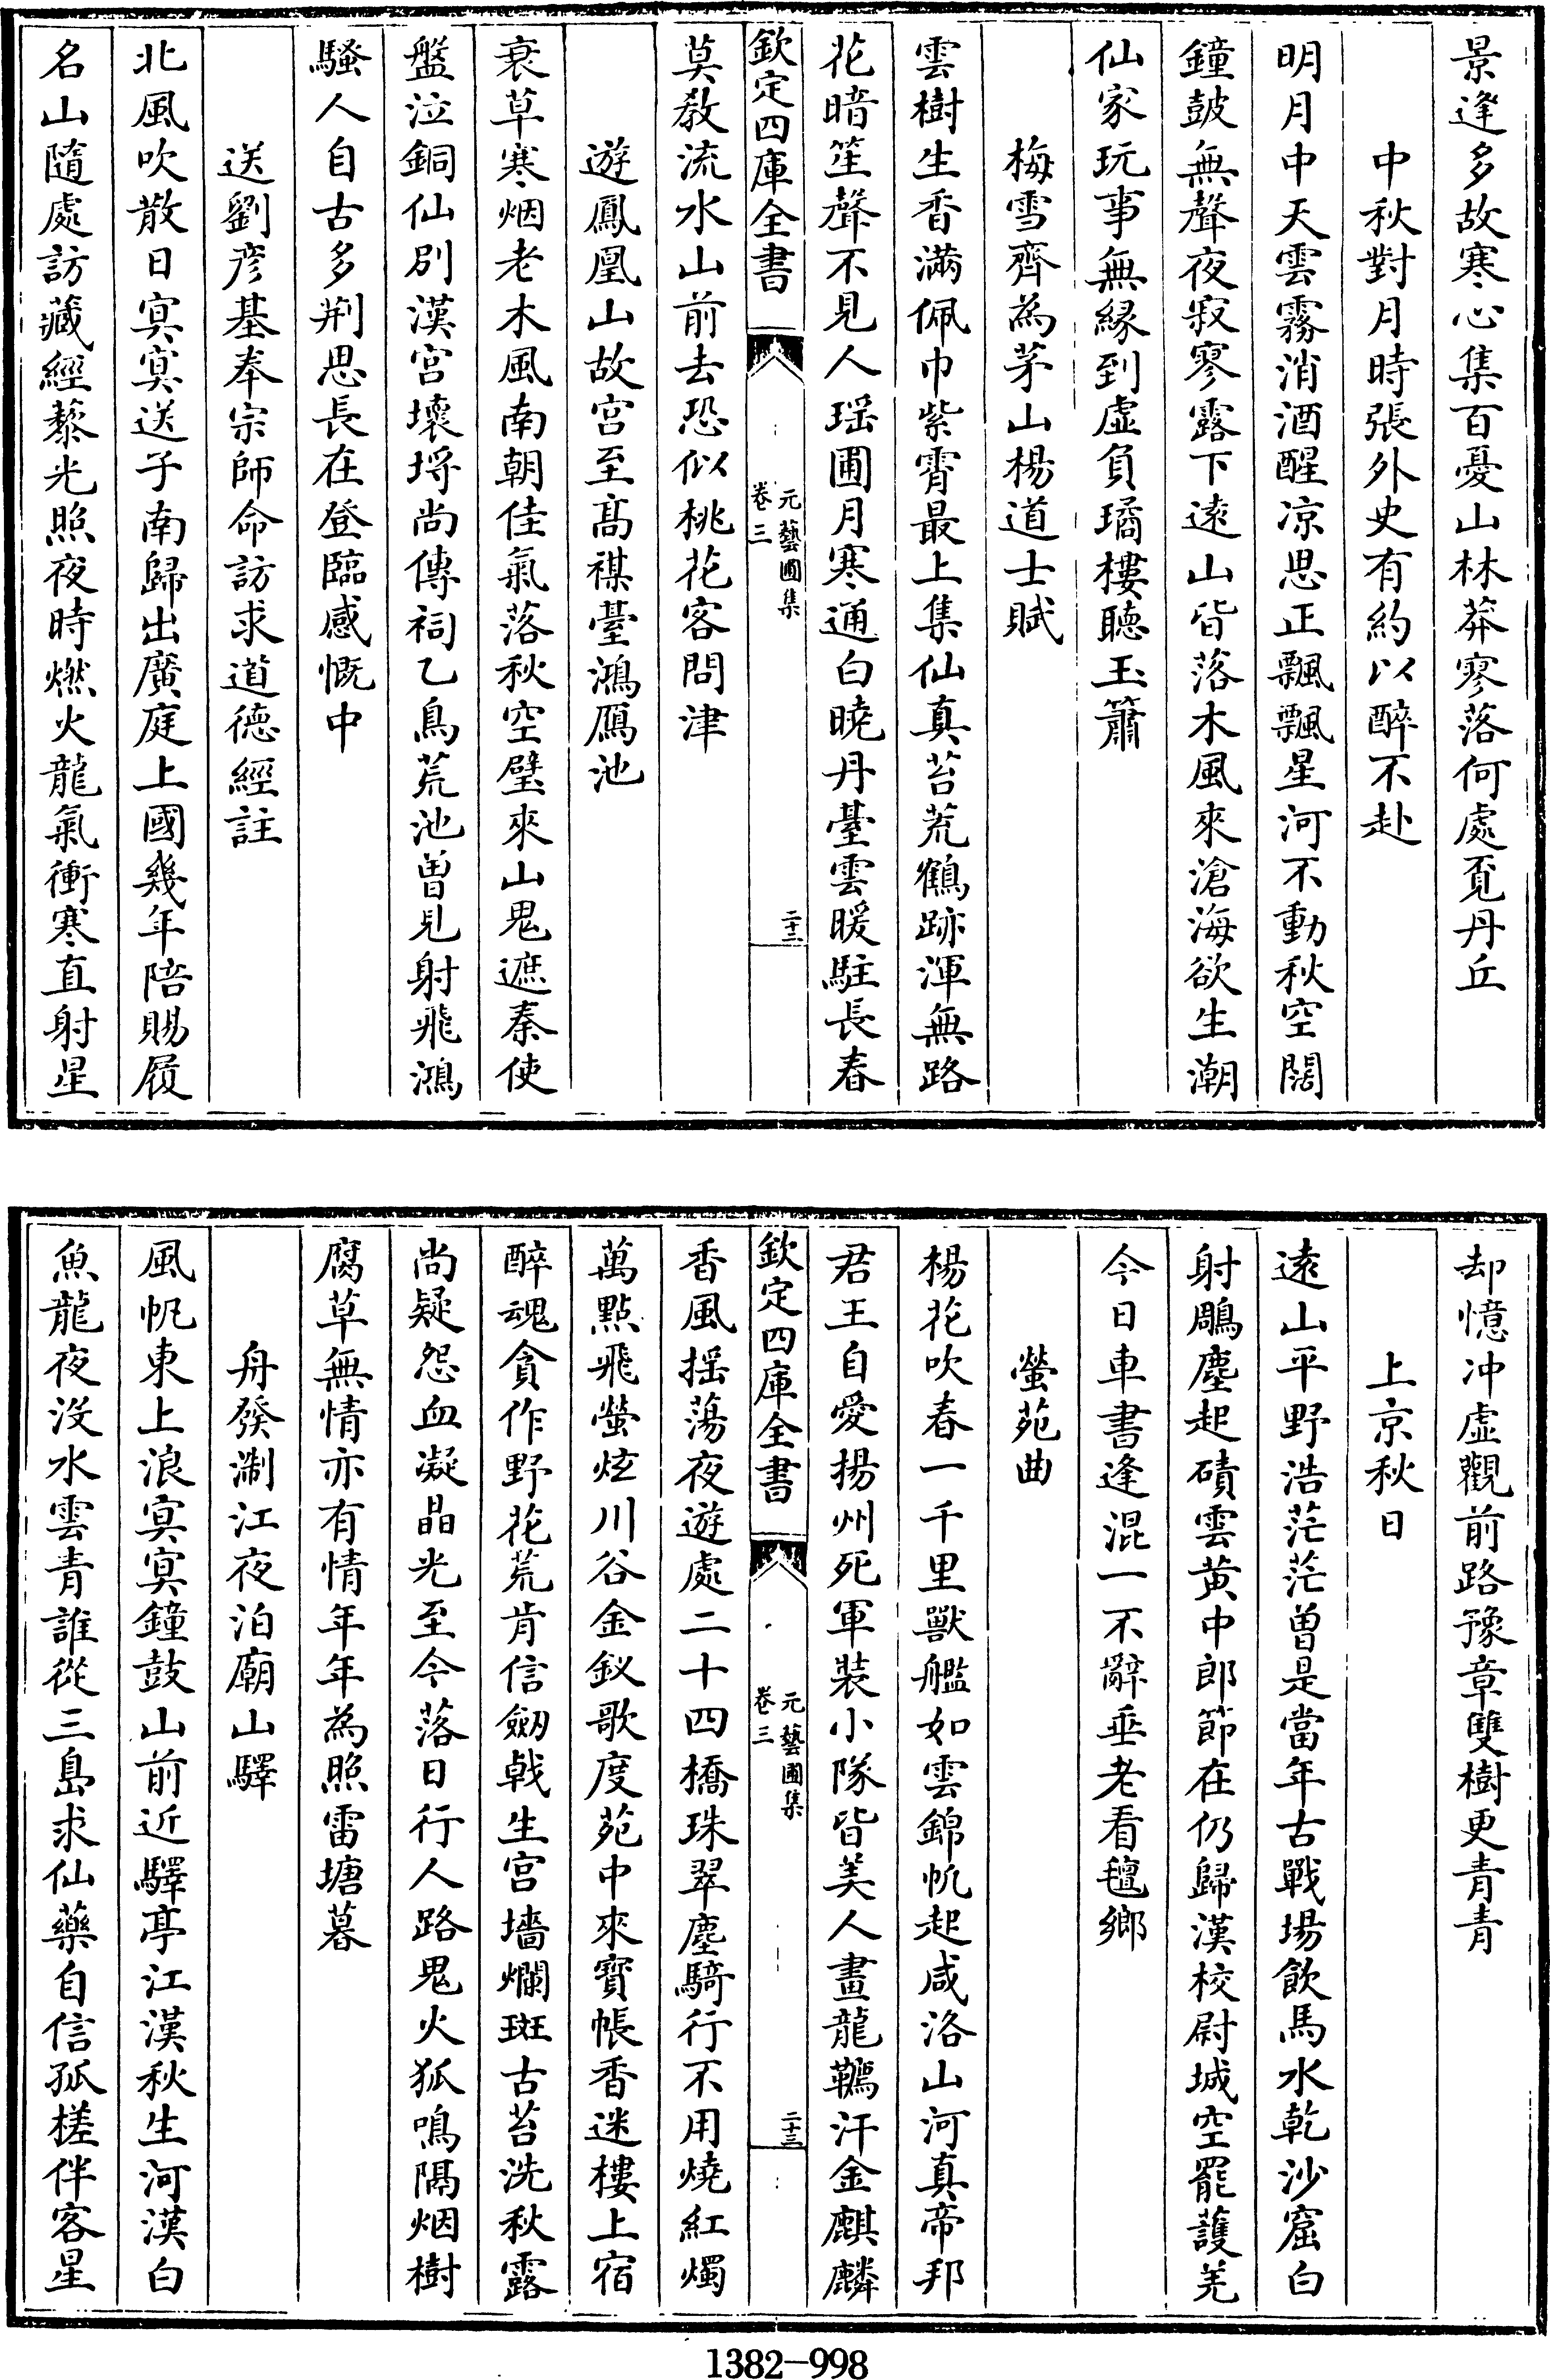 景逢多故寒心集百憂山林莽寥落何處覔丹丘
中秋對月時張外史有約以醉不赴
明月中天雲霧消酒醒凉思正飄飄星河不動秋空闊
鐘皷無聲夜寂寥露下遠山皆落木風來滄海欲生潮
仙家玩事無縁到虚負璚樓聴玉簫
梅雪齊為茅山楊道士賦
雲樹生香滿佩巾紫霄最上集仙真苔荒鶴跡渾無路
花暗笙聲不見人瑶圃月寒通白曉丹臺雲暖駐長春
欽定四庫全書
元藝圃集
卷三
二十二
莫教流水山前去恐似桃花客問津
遊鳳凰山故宫至髙禖臺鴻鴈池
衰草寒烟老木風南朝佳氣落秋空璧來山鬼遮秦使
盤泣銅仙别漢宫壞埒尚傳祠乙鳥荒池曽見射飛鴻
騷人自古多荆思長在登臨感慨中
送劉彦基奉宗師命訪求道徳經註
北風吹散日㝠㝠送子南歸出廣庭上國幾年陪賜履
名山隨處訪藏經藜光照夜時燃火龍氣衝寒直射星
却憶冲虚觀前路豫章雙樹更青青
上京秋日
遠山平野浩茫茫曽是當年古戰場飲馬水乾沙窟白
射鵰塵起磧雲黄中郎節在仍歸漢校尉城空罷護羌
今日車書逢混一不辭垂老看氊鄉
螢苑曲
楊花吹春一千里獸艦如雲錦帆起咸洛山河真帝邦
君王自愛揚州死軍装小隊皆美人畫龍韉汗金麒麟
欽定四庫全書
元藝圃集
卷三
二十三
香風揺蕩夜遊處二十四橋珠翠塵騎行不用燒紅燭
萬點飛螢炫川谷金釵歌度苑中來寳帳香迷樓上宿
醉魂貪作野花荒肯信劒戟生宫墻斕斑古苔洗秋露
尚疑怨血凝晶光至今落日行人路鬼火狐鳴隔烟樹
腐草無情亦有情年年為照雷塘暮
舟發淛江夜泊廟山驛
風帆東上浪㝠㝠鐘鼓山前近驛亭江漢秋生河漢白
魚龍夜没水雲青誰從三島求仙藥自信孤槎伴客星
1382-998